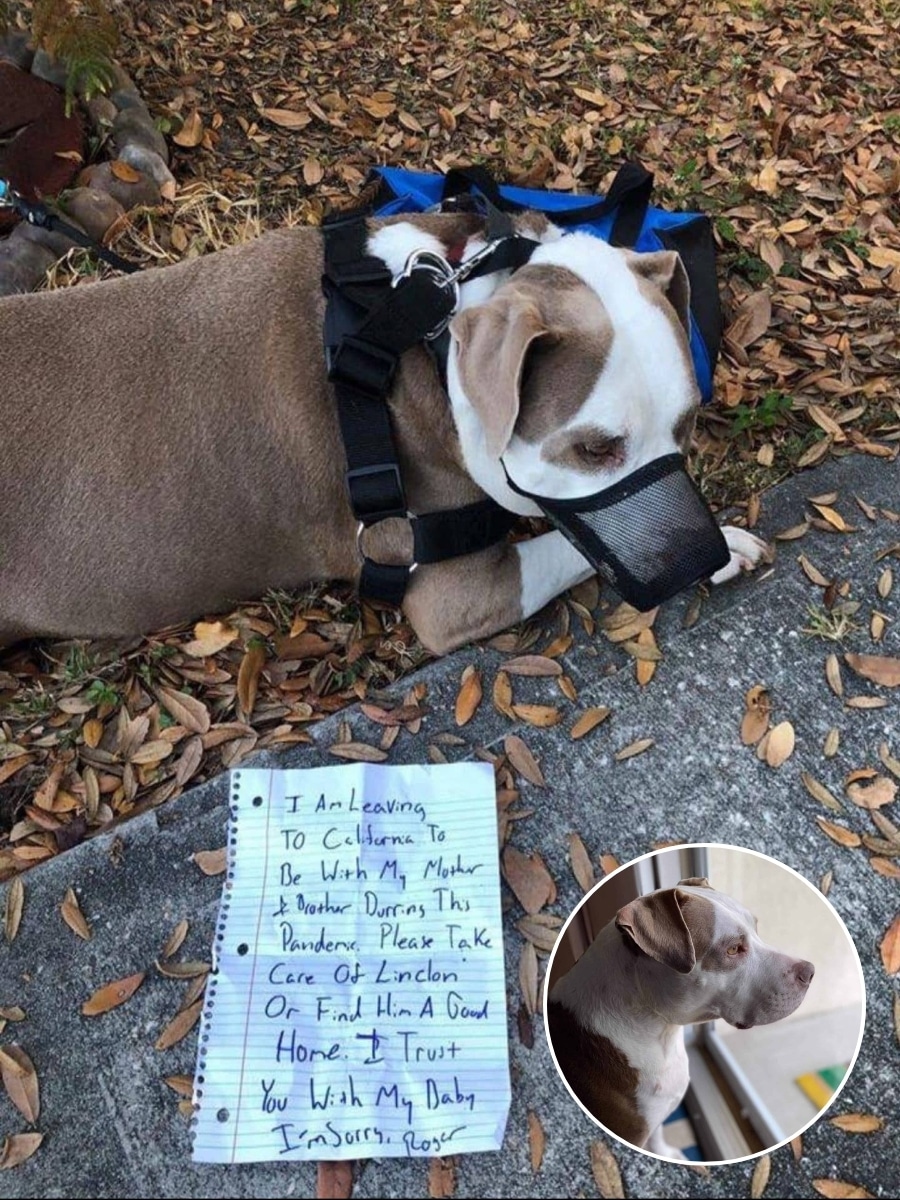 I Am Leaving
TO California To
Be With My Mother
& Brother Durring This
Pandemic. Please Take
Care Of Linclon
Or Find Him A Good
Home. I Trust
You With My Baby
I'm Sorry, Roger